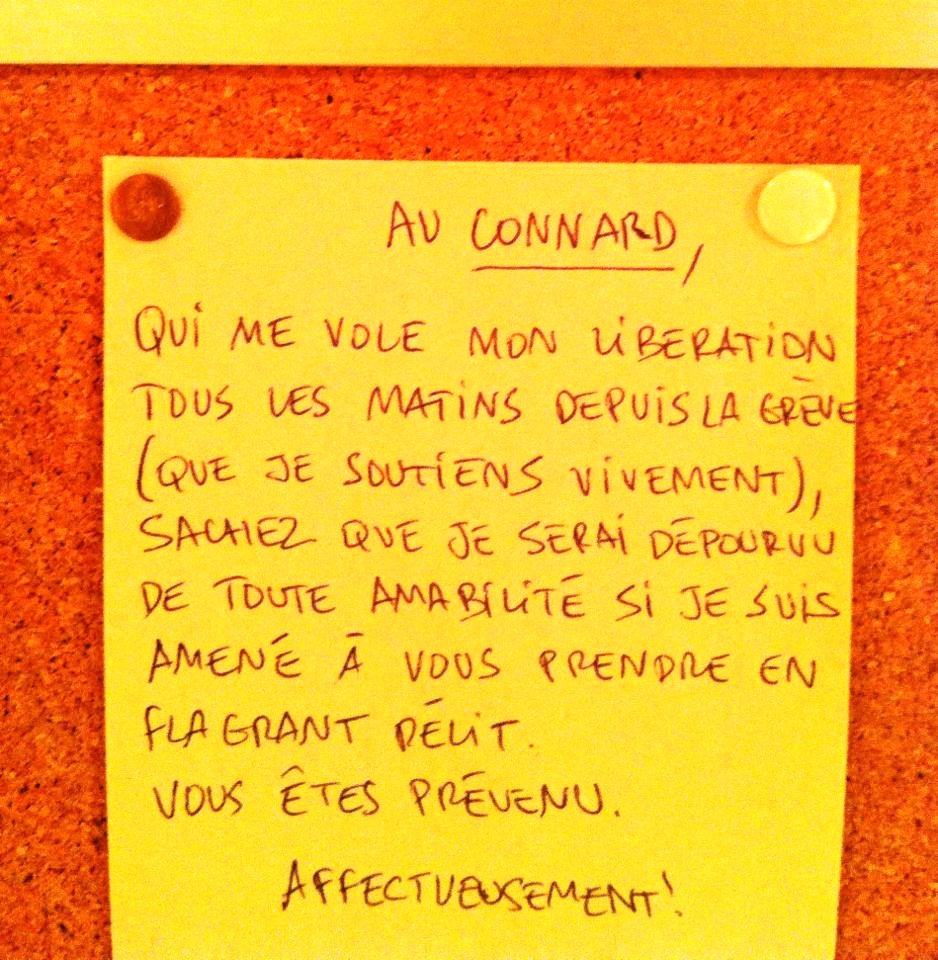 AU CONNARD,
QUi ME VOLE MON LiBERATiON
TOUS LES MATiNS DEPUiS LA GRÈVE
(QUE JE SOUTiENS ViVEMENT),
SACHEZ QUE JE SERAi DÉPOURVU
DE TOUTE AMABiLiTÉ Si JE SUiS
AMENÉ À VOUS PRENDRE EN
FLAGRANT DÉLiT.
VOUS ÊTES PRÉVENU.
AFFECTUEUSEMENT!